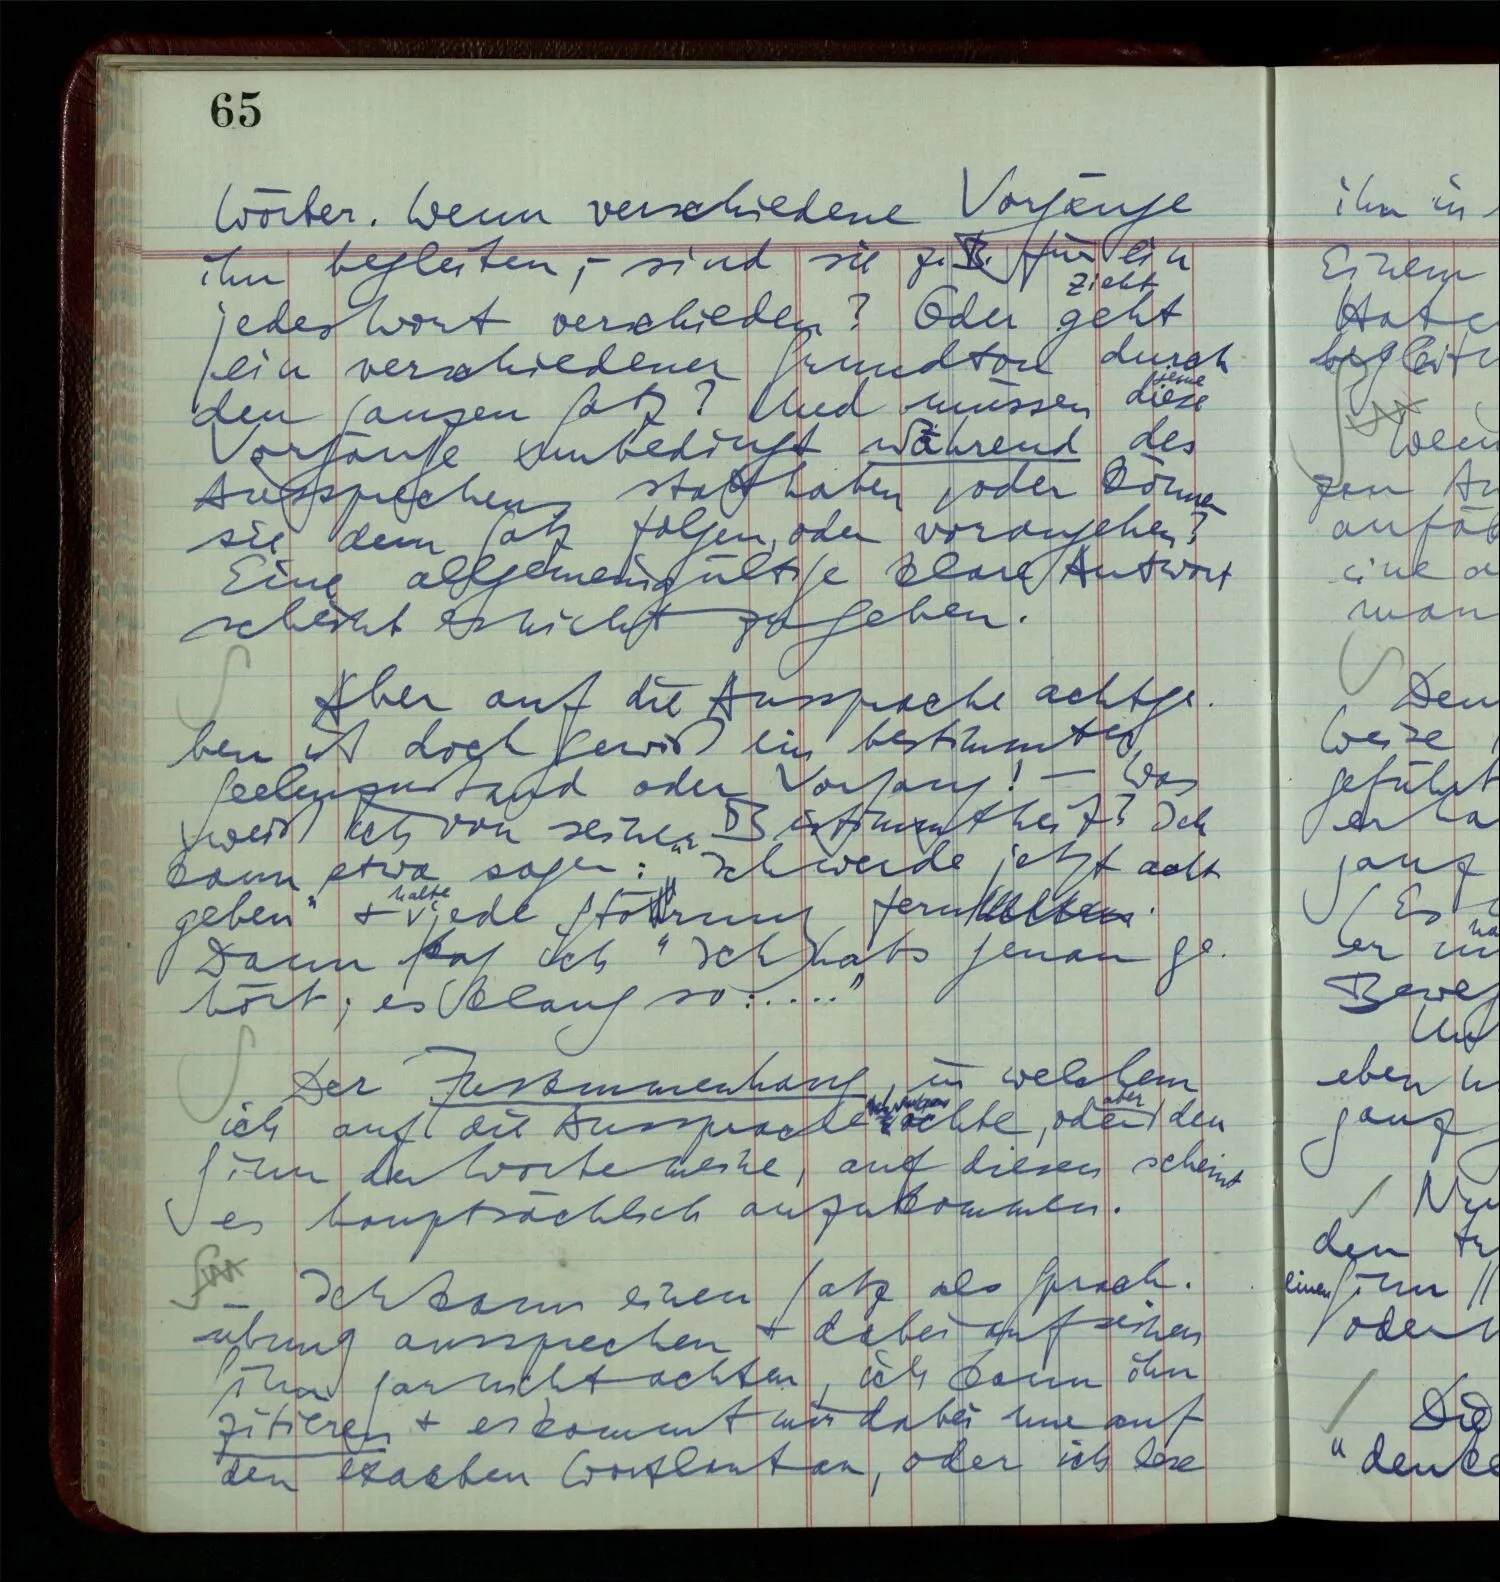 65
Wörter. Wenn verschiedene Vorgänge
ihn begleiten, – sind sie z.B. für ein
jedes Wort verschieden? Oder geht
zieht
ein verschiedener Grundton durch
den ganzen Satz? Und müssen diese
jene
Vorgänge unbedingt während des
Aussprechens statthaben, oder können
sie dem Satz folgen, oder vorangehen?
Eine allgemeingültige klare Antwort
scheint es nicht zu geben.
Aber auf die Aussprache achtge-
ben ist doch gewiß ein bestimmter
Seelenzustand oder Vorgang! – Was
weiß ich von seiner Bestimmtheit? Ich
kann etwa sagen: "Ich werde jetzt acht
geben" + halte jede Störung fern.
Dann sag ich "Ich habs genau ge-
hört; es klang so: ....."
Der Zusammenhang, in welchem
ich auf die Aussprache achte, oder den
aber
Sinn der Worte meine, auf diesen scheint
es hauptsächlich anzukommen.
Ich kann einen Satz als Sprach-
übung aussprechen + dabei auf seinen
Sinn garnicht achten, ich kann ihn
zitieren + es kommt mir dabei nur auf
den exakten Wortlaut an, oder ich lese
ihn in
Einem
begleit
Wen
zen
eine a
man
Den
Weise
geführt
ganz
(Es
er
Beweg
Und
eben
ganz
Nu
den
einen Sinn
oder
Die
"denke